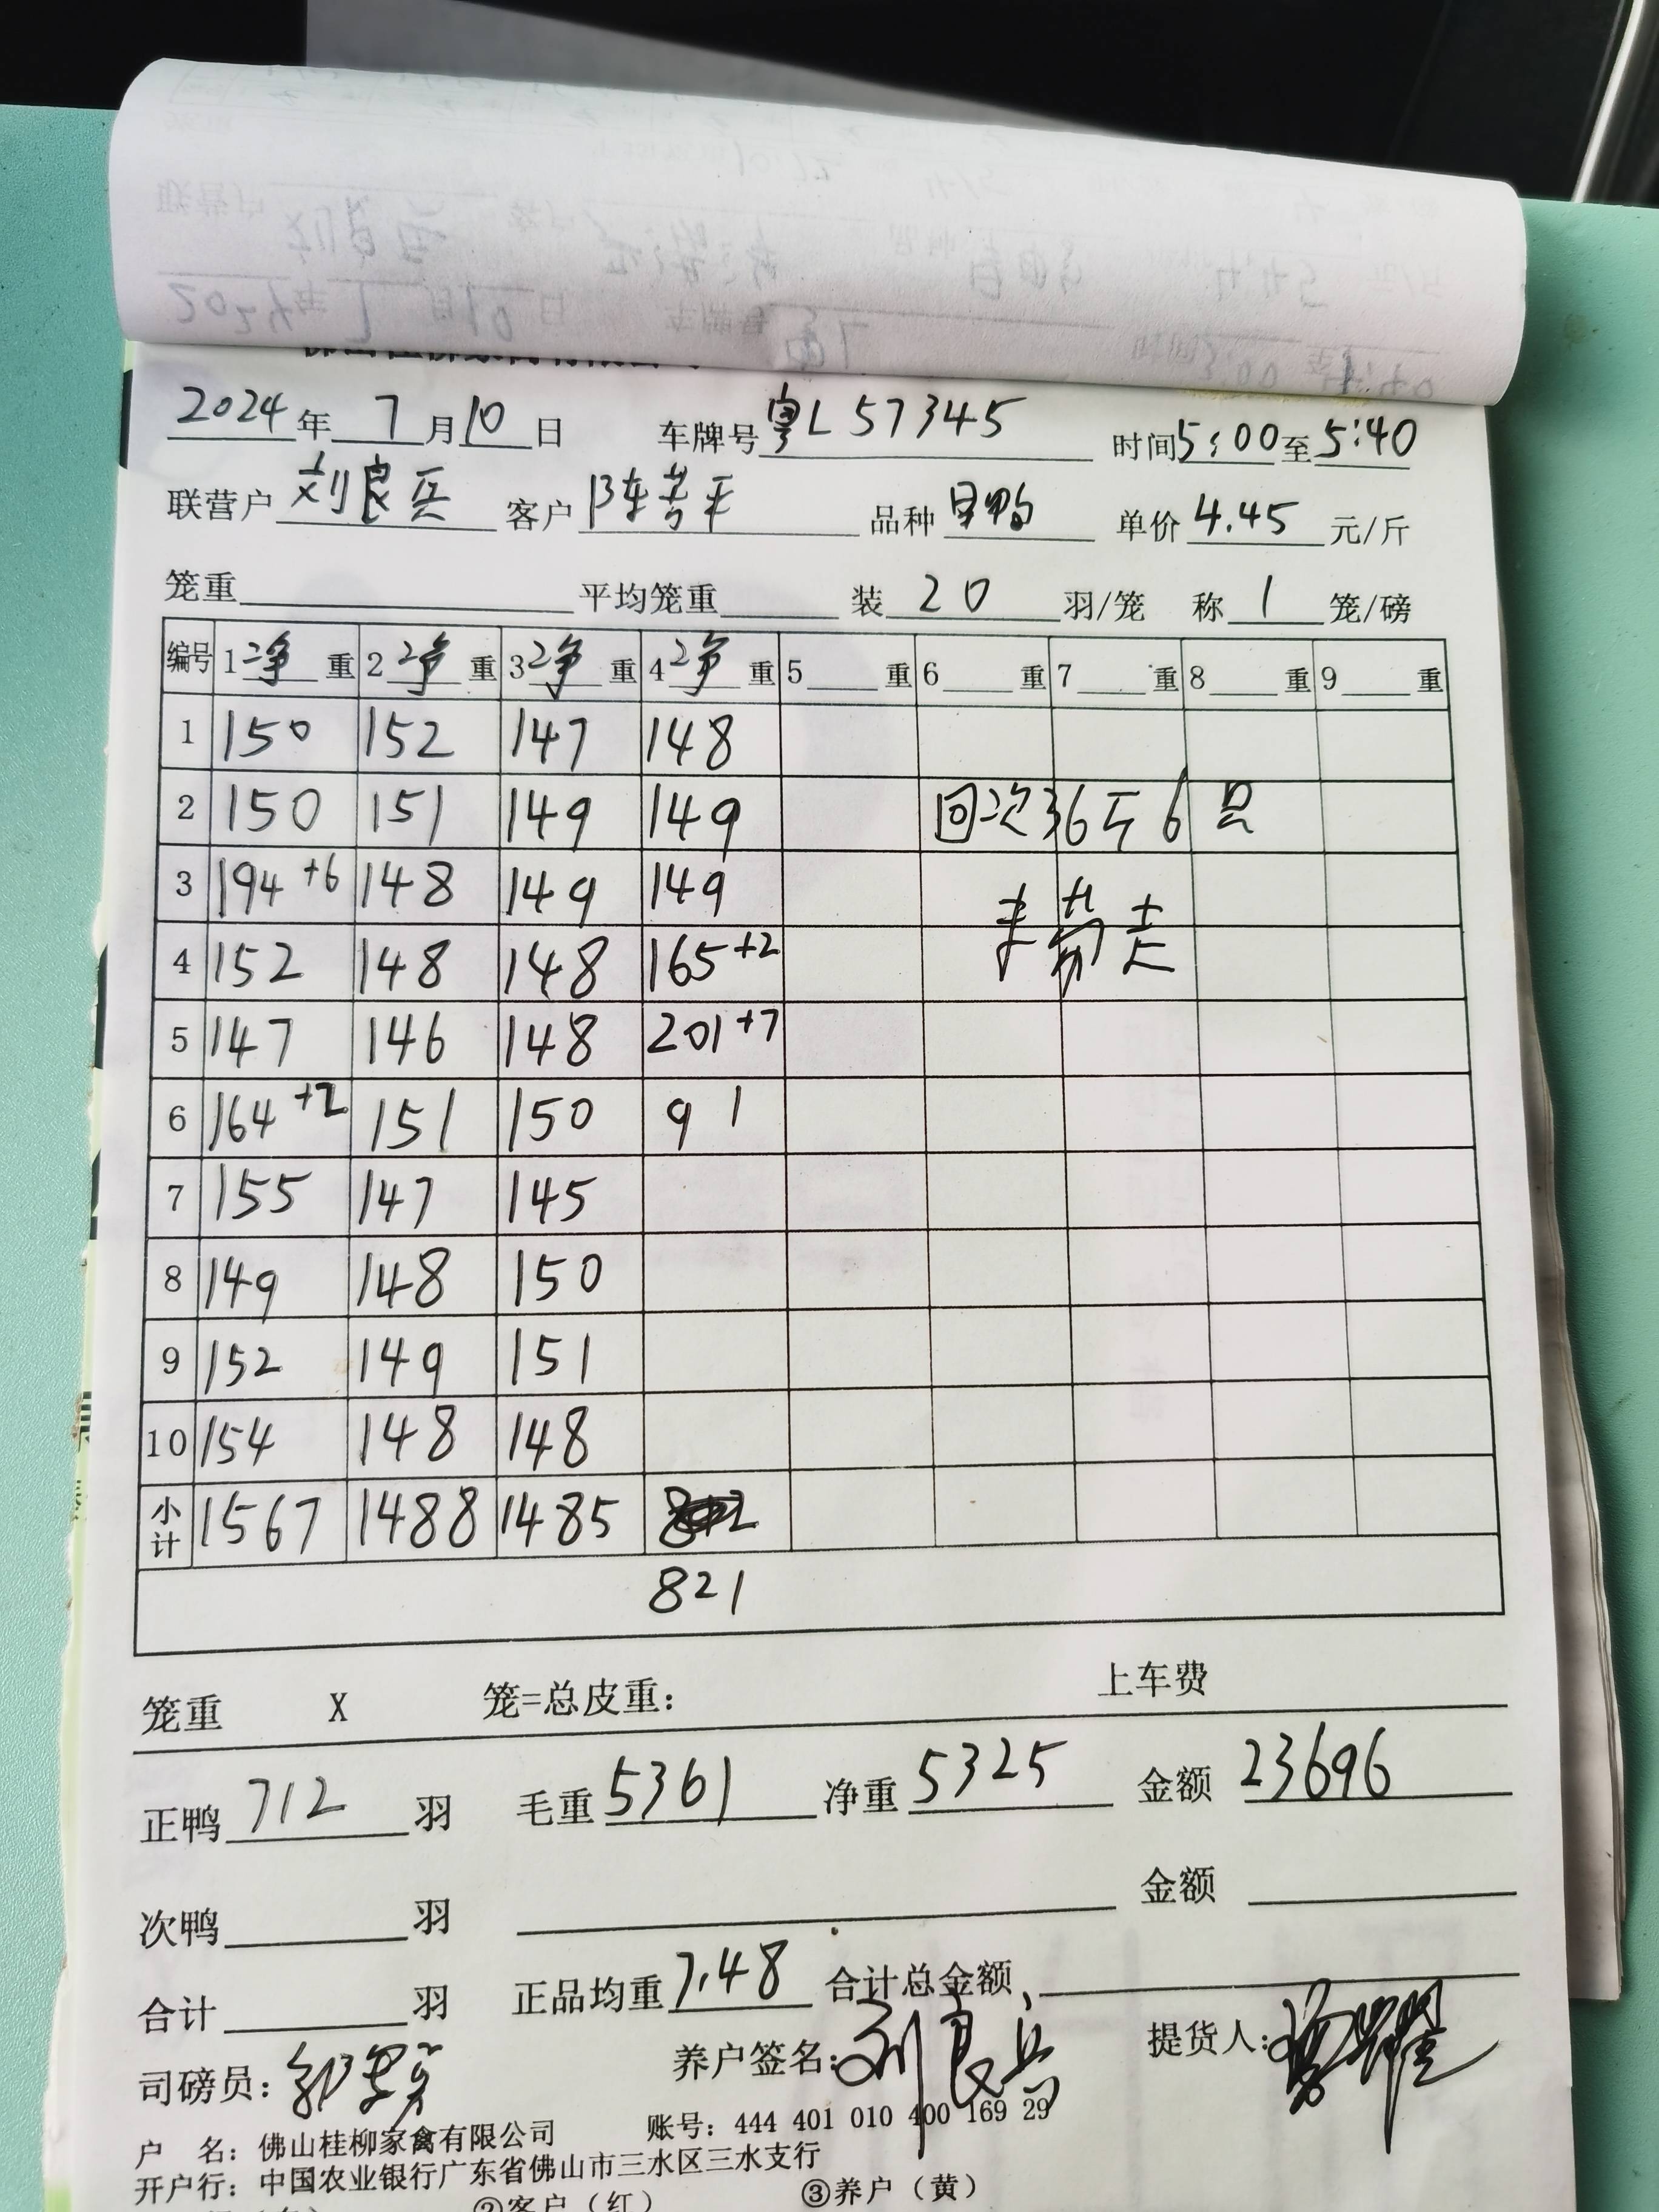 2024年 7月10日 车牌号 粤L57345 时间5:00至5:40
联营户 刘良兵 客户 陈 平 品种 旱鸭 单价 4.45 元/斤
笼重 平均笼重 装 20 羽/笼 称 1 笼/磅
编号 1净重 2净重 3净重 4净重 5重 6重 7重 8重 9重
1 150 152 147 148
2 150 151 149 149 回次36斤6只
3 194+6 148 149 149
4 152 148 148 165+2
5 147 146 148 201+7
6 164+2 151 150 9 1
7 155 147 145
8 149 148 150
9 152 149 151
10 154 148 148
小计 1567 1488 1485
821
笼重 X 笼=总皮重: 上车费
正鸭 712 羽 毛重 5361 净重 5325 金额 23696
次鸭 羽 金额
合计 羽 正品均重 7.48 合计总金额
司磅员: 养户签名: 刘良兵 提货人:
户 名: 佛山桂柳家禽有限公司 账号: 444 401 010 400 169 29
开户行: 中国农业银行广东省佛山市三水区三水支行
②客户(红) ③养户(黄)